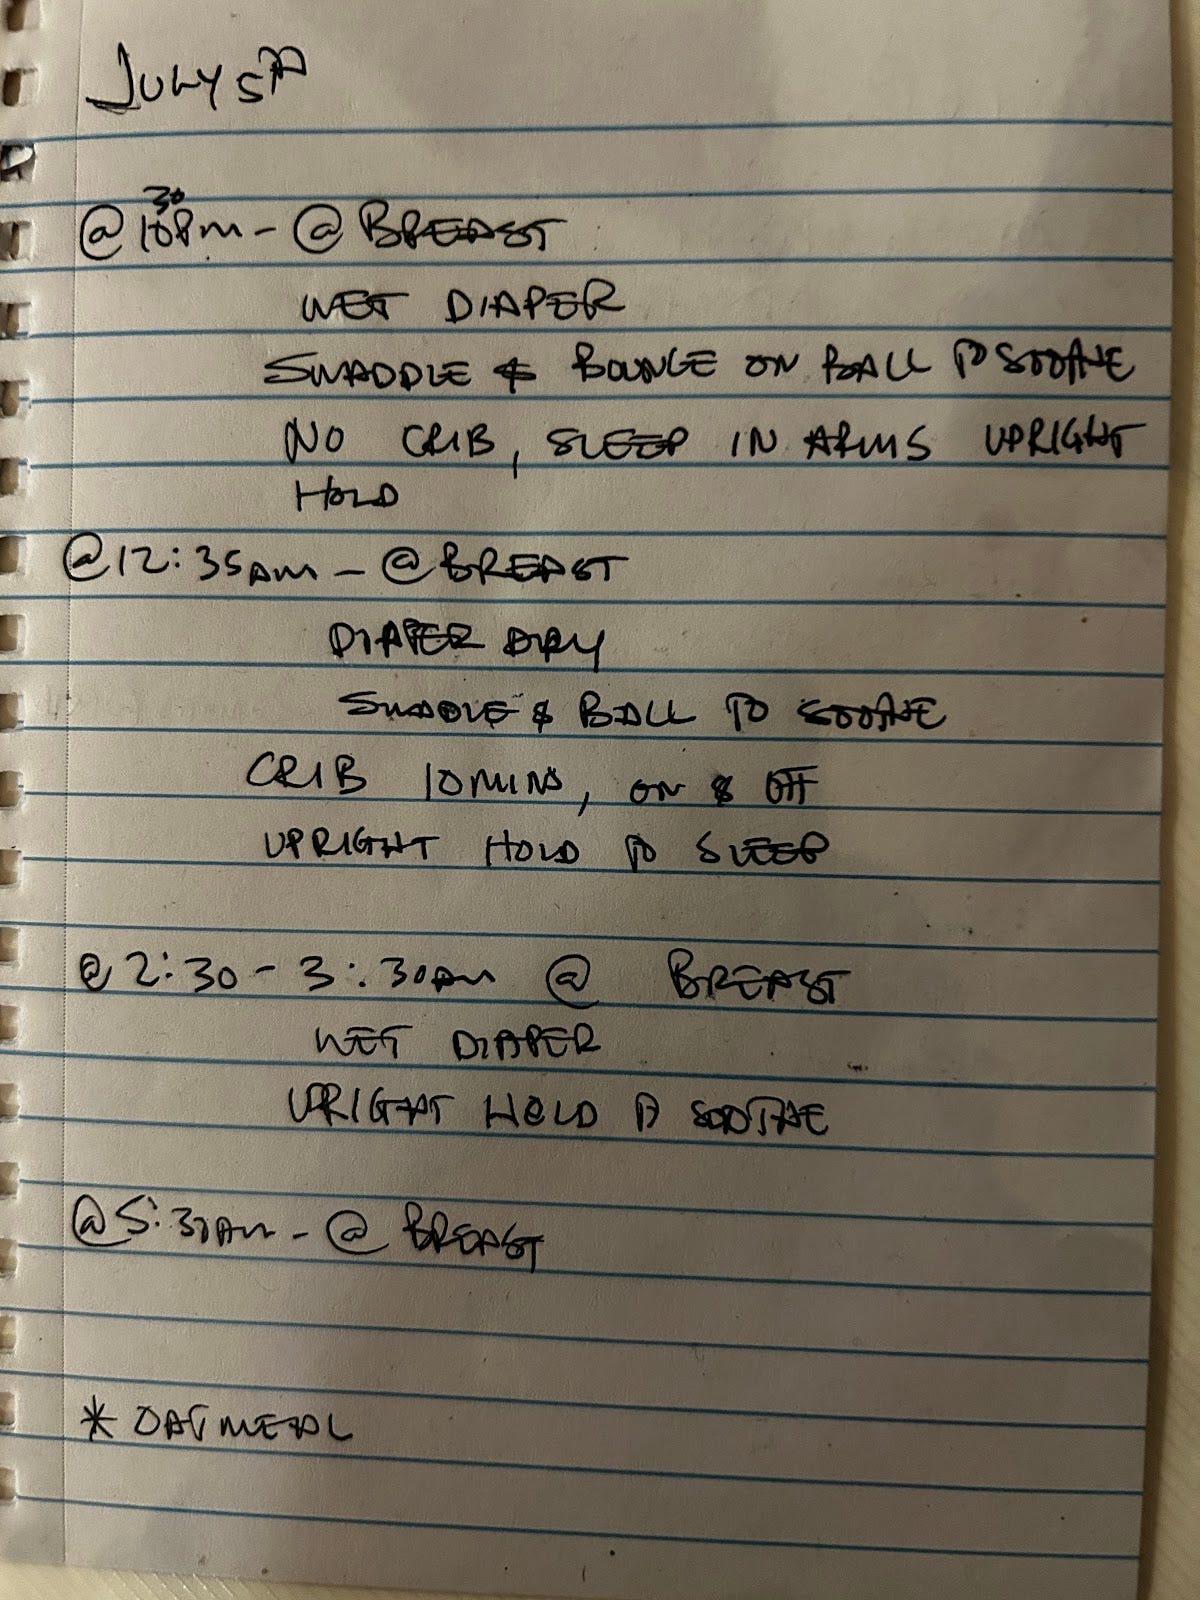 JULY 5th
@ 10 30 PM - @ BREAST
WET DIAPER
SWADDLE & BOUNCE ON BALL TO SOOTHE
NO CRIB, SLEEP IN ARMS UPRIGHT
HOLD
@ 12:35AM - @ BREAST
DIAPER DRY
SWADDLE & BALL TO SOOTHE
CRIB 10MINS, ON & OFF
UPRIGHT HOLD TO SLEEP
@ 2:30 - 3:30AM @ BREAST
WET DIAPER
UPRIGHT HOLD TO SOOTHE
@ 5:30AM - @ BREAST
* OATMEAL